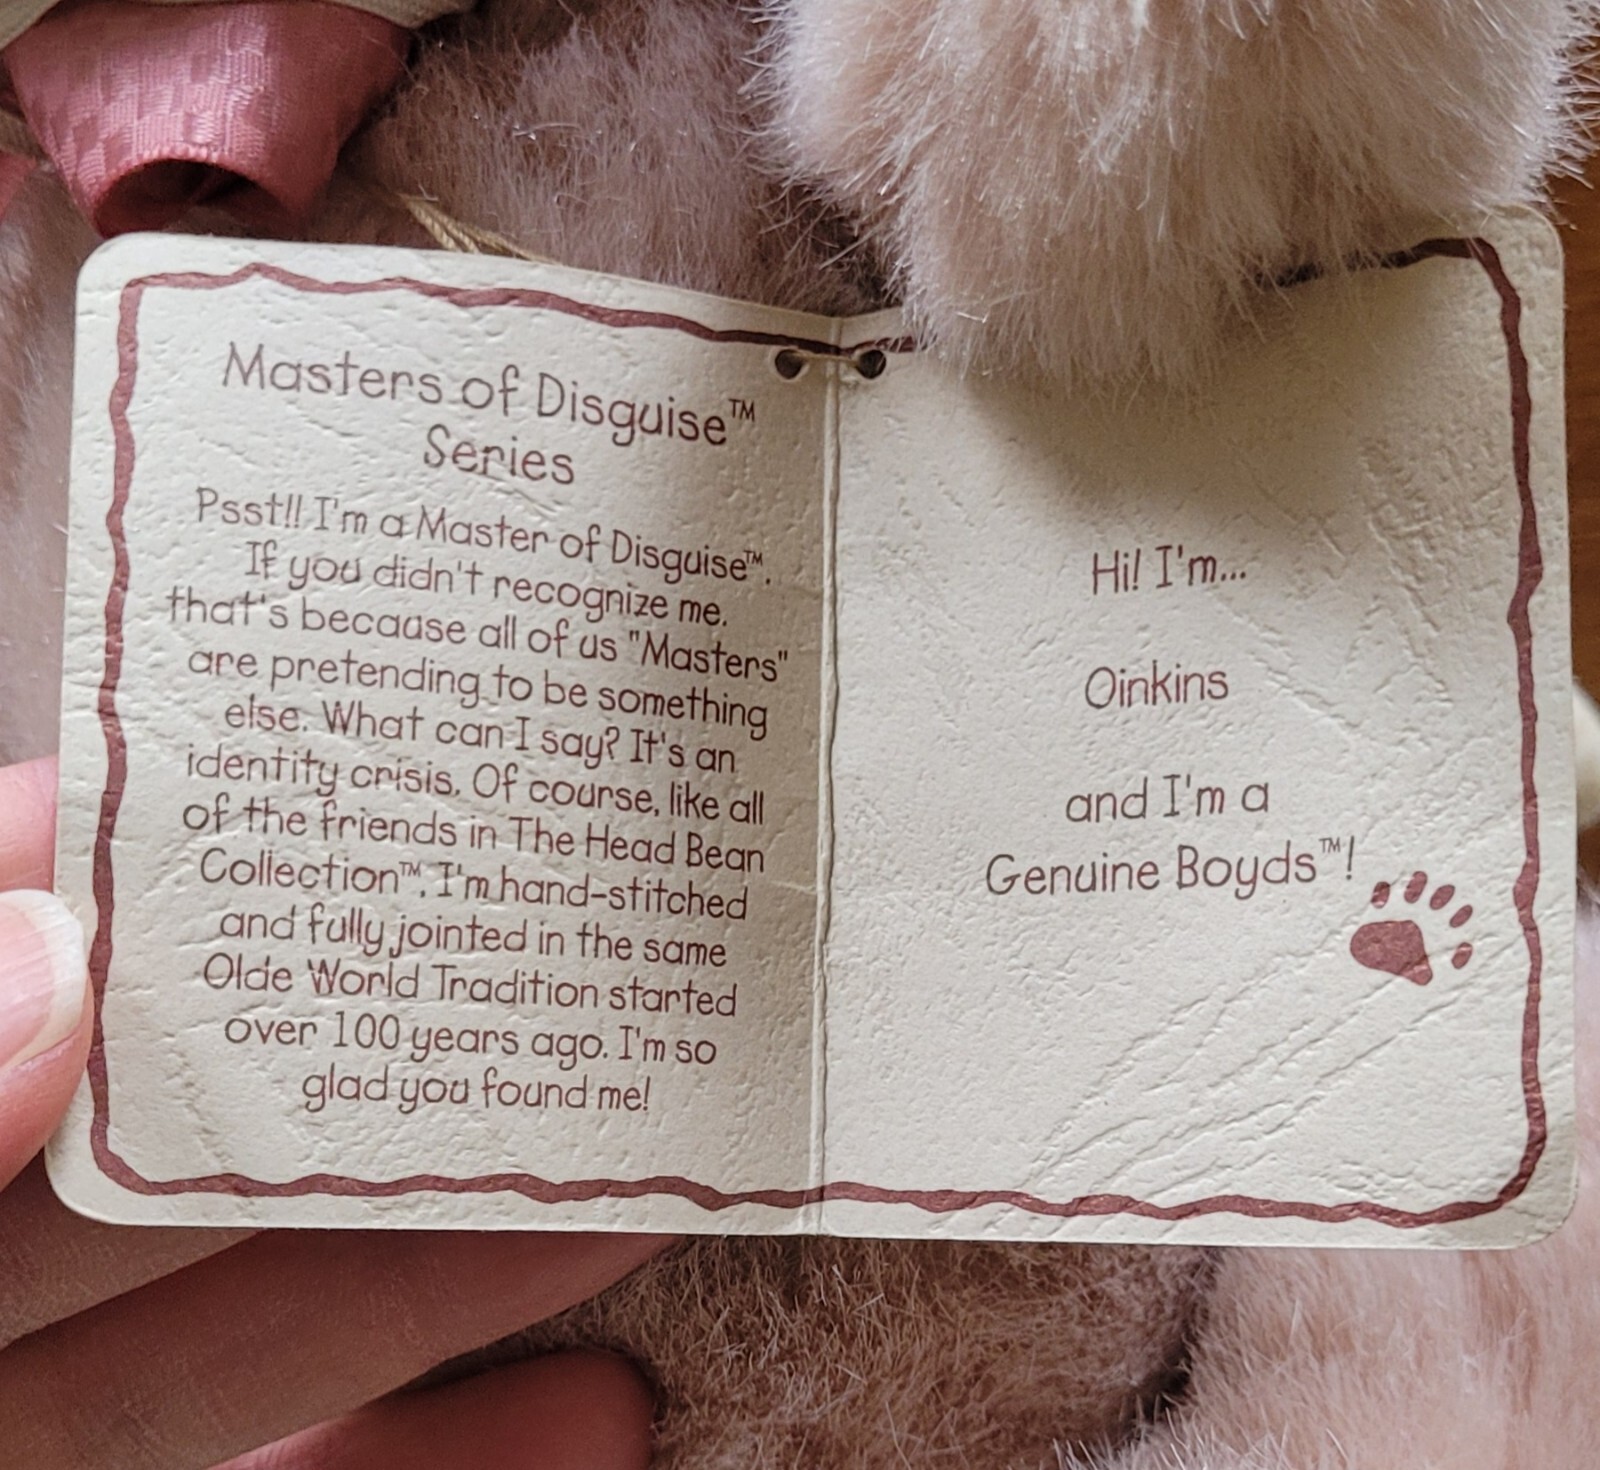 Masters of Disguise™
Series
Psst!! I'm a Master of Disguise™.
If you didn't recognize me.
that's because all of us "Masters"
are pretending to be something
else. What can I say? It's an
identity crisis. Of course, like all
of the friends in The Head Bean
Collection™, I'm hand-stitched
and fully jointed in the same
Olde World Tradition started
over 100 years ago. I'm so
glad you found me!
Hi! I'm...
Oinkins
and I'm a
Genuine Boyds™!